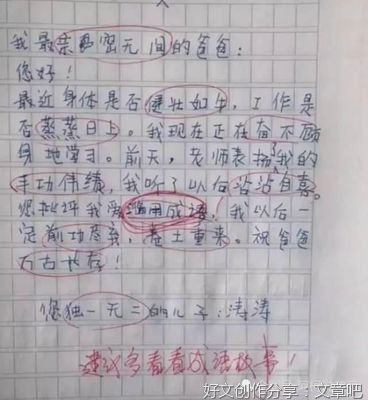 我最亲密无间的爸爸：
您好！
最近身体是否健壮如牛，工作是
否蒸蒸日上。我现在正在奋不顾
身地学习。前天，老师表扬我的
丰功伟绩，我听了以后沾沾自喜。
您批评我爱滥用成语，我以后一
定前功尽弃，卷土重来。祝爸爸
万古长存！
您独一无二的儿子：涛涛
建议多看看成语故事！
好文创作分享：文章吧